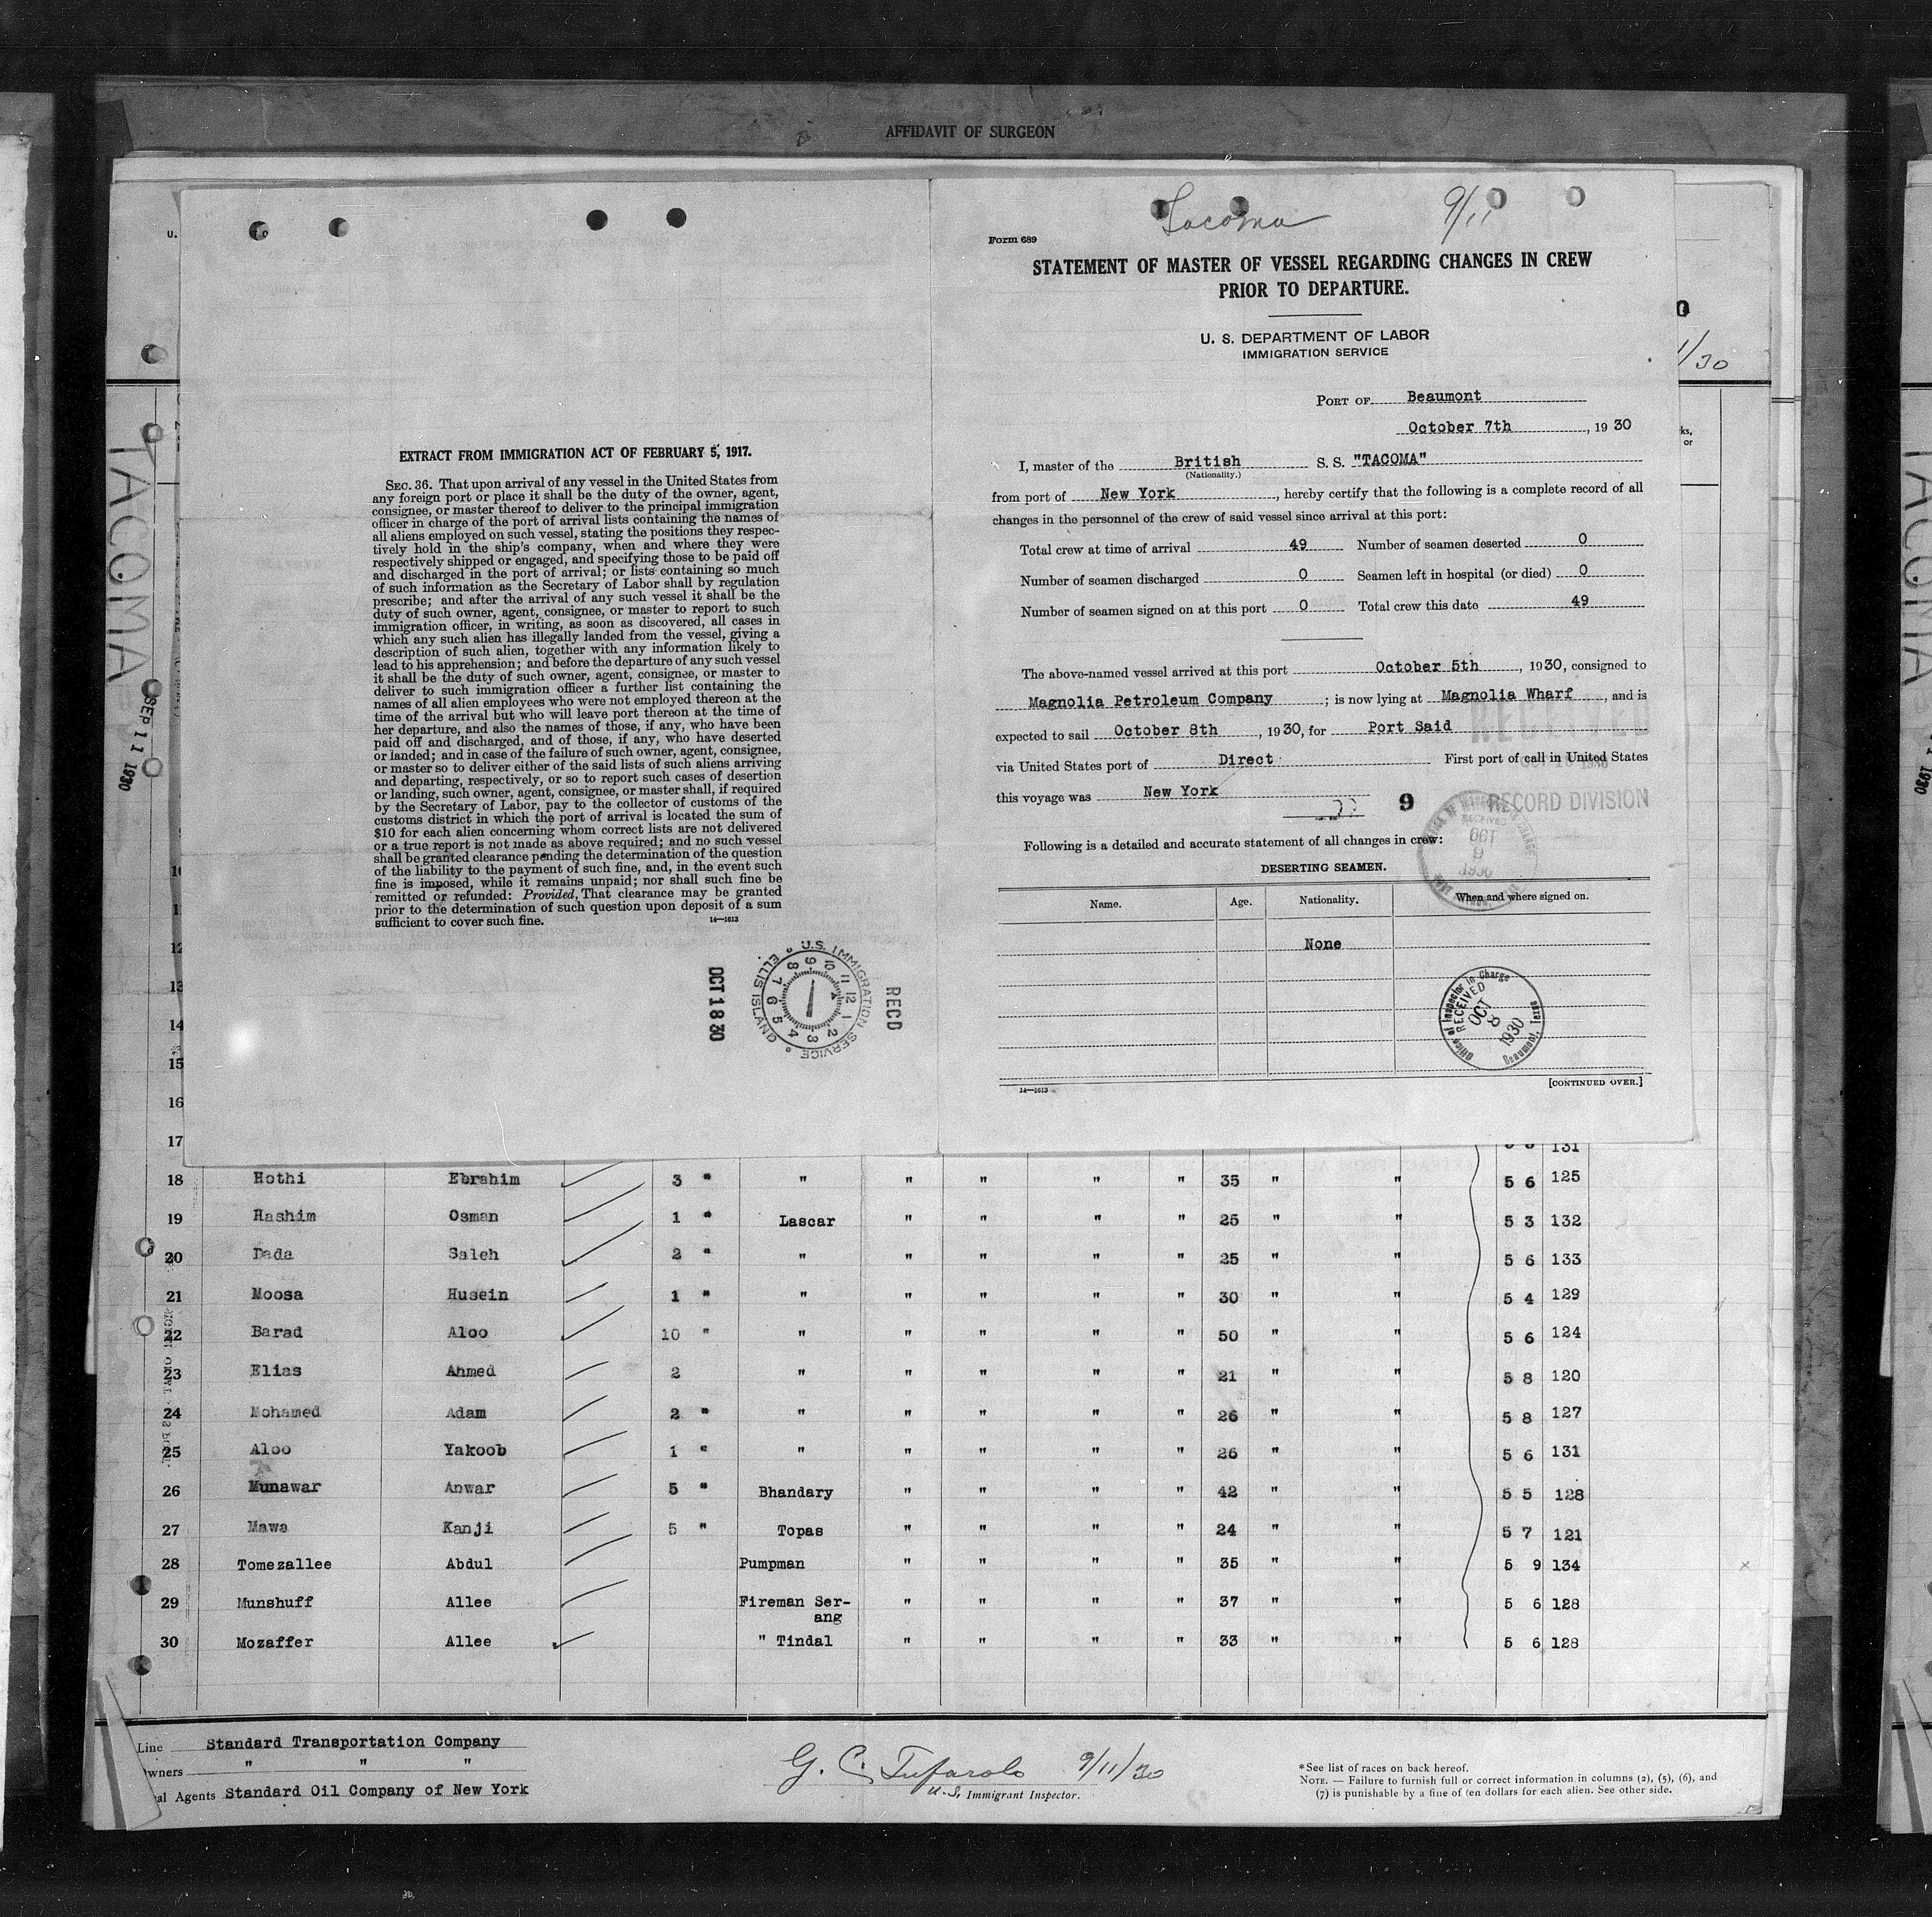 AFFIDAVIT OF SURGEON
TACOMA
SEP 11 1930
EXTRACT FROM IMMIGRATION ACT OF FEBRUARY 5, 1917.
SEC. 36. That upon arrival of any vessel in the United States from
any foreign port or place it shall be the duty of the owner, agent,
consignee, or master thereof to deliver to the principal immigration
officer in charge of the port of arrival lists containing the names of
all aliens employed on such vessel, stating the positions they respec-
tively hold in the ship's company, when and where they were
respectively shipped or engaged, and specifying those to be paid off
and discharged in the port of arrival; or lists containing so much
of such information as the Secretary of Labor shall by regulation
prescribe; and after the arrival of any such vessel it shall be the
duty of such owner, agent, consignee, or master to report to such
immigration officer, in writing, as soon as discovered, all cases in
which any such alien has illegally landed from the vessel, giving a
description of such alien, together with any information likely to
lead to his apprehension; and before the departure of any such vessel
it shall be the duty of such owner, agent, consignee, or master to
deliver to such immigration officer a further list containing the
names of all alien employees who were not employed thereon at the
time of the arrival but who will leave port thereon at the time of
her departure, and also the names of those, if any, who have been
paid off and discharged, and of those, if any, who have deserted
or landed; and in case of the failure of such owner, agent, consignee,
or master so to deliver either of the said lists of such aliens arriving
and departing, respectively, or so to report such cases of desertion
or landing, such owner, agent, consignee, or master shall, if required
by the Secretary of Labor, pay to the collector of customs of the
customs district in which the port of arrival is located the sum of
$10 for each alien concerning whom correct lists are not delivered
or a true report is not made as above required; and no such vessel
shall be granted clearance pending the determination of the question
of the liability to the payment of such fine, and, in the event such
fine is imposed, while it remains unpaid; nor shall such fine be
remitted or refunded: Provided, That clearance may be granted
prior to the determination of such question upon deposit of a sum
sufficient to cover such fine. 14—1613
OCT 18 30
U.S. IMMIGRATION SERVICE ELLIS ISLAND
RECD
Tacoma 9/11
Form 689
STATEMENT OF MASTER OF VESSEL REGARDING CHANGES IN CREW
PRIOR TO DEPARTURE.
U. S. DEPARTMENT OF LABOR
IMMIGRATION SERVICE
PORT OF Beaumont
October 7th, 1930
I, master of the British S. S. "TACOMA"
(Nationality.)
from port of New York, hereby certify that the following is a complete record of all
changes in the personnel of the crew of said vessel since arrival at this port:
Total crew at time of arrival 49 Number of seamen deserted 0
Number of seamen discharged 0 Seamen left in hospital (or died) 0
Number of seamen signed on at this port 0 Total crew this date 49
The above-named vessel arrived at this port October 5th, 1930, consigned to
Magnolia Petroleum Company; is now lying at Magnolia Wharf, and is
expected to sail October 8th, 1930, for Port Said
via United States port of Direct First port of call in United States
this voyage was New York
9
RECEIVED
RECORD DIVISION
RECEIVED
OCT
9
1930
Following is a detailed and accurate statement of all changes in crew:
DESERTING SEAMEN.
Name. Age. Nationality. When and where signed on.
None
Office of Inspector in Charge
RECEIVED
OCT 8 1930
Beaumont, Texas
14—1613 [CONTINUED OVER.]
/30
ks,
or
12
13
14
15
16
17 131
18 Hothi Ebrahim 3 " " " " " " 35 " " 5 6 125
19 Hashim Osman 1 " Lascar " " " " 25 " " 5 3 132
20 Dada Saleh 2 " " " " " " 25 " " 5 6 133
21 Moosa Husein 1 " " " " " " 30 " " 5 4 129
22 Barad Aloo 10 " " " " " " 50 " " 5 6 124
23 Elias Ahmed 2 " " " " " 21 " " 5 8 120
24 Mohamed Adam 2 " " " " " " 26 " " 5 8 127
25 Aloo Yakoob 1 " " " " " " 26 " " 5 6 131
26 Munawar Anwar 5 " Bhandary " " " " 42 " " 5 5 128
27 Mawa Kanji 5 " Topas " " " " 24 " " 5 7 121
28 Tomezallee Abdul Pumpman " " " " 35 " " 5 9 134
29 Munshuff Allee Fireman Ser-
ang " " " " 37 " " 5 6 128
30 Mozaffer Allee " Tindal " " " " 33 " " 5 6 128
Line Standard Transportation Company
Owners " " "
al Agents Standard Oil Company of New York
G. C. Tufarolo 9/11/30
U.S. Immigrant Inspector.
*See list of races on back hereof.
NOTE. — Failure to furnish full or correct information in columns (2), (5), (6), and
(7) is punishable by a fine of ten dollars for each alien. See other side.